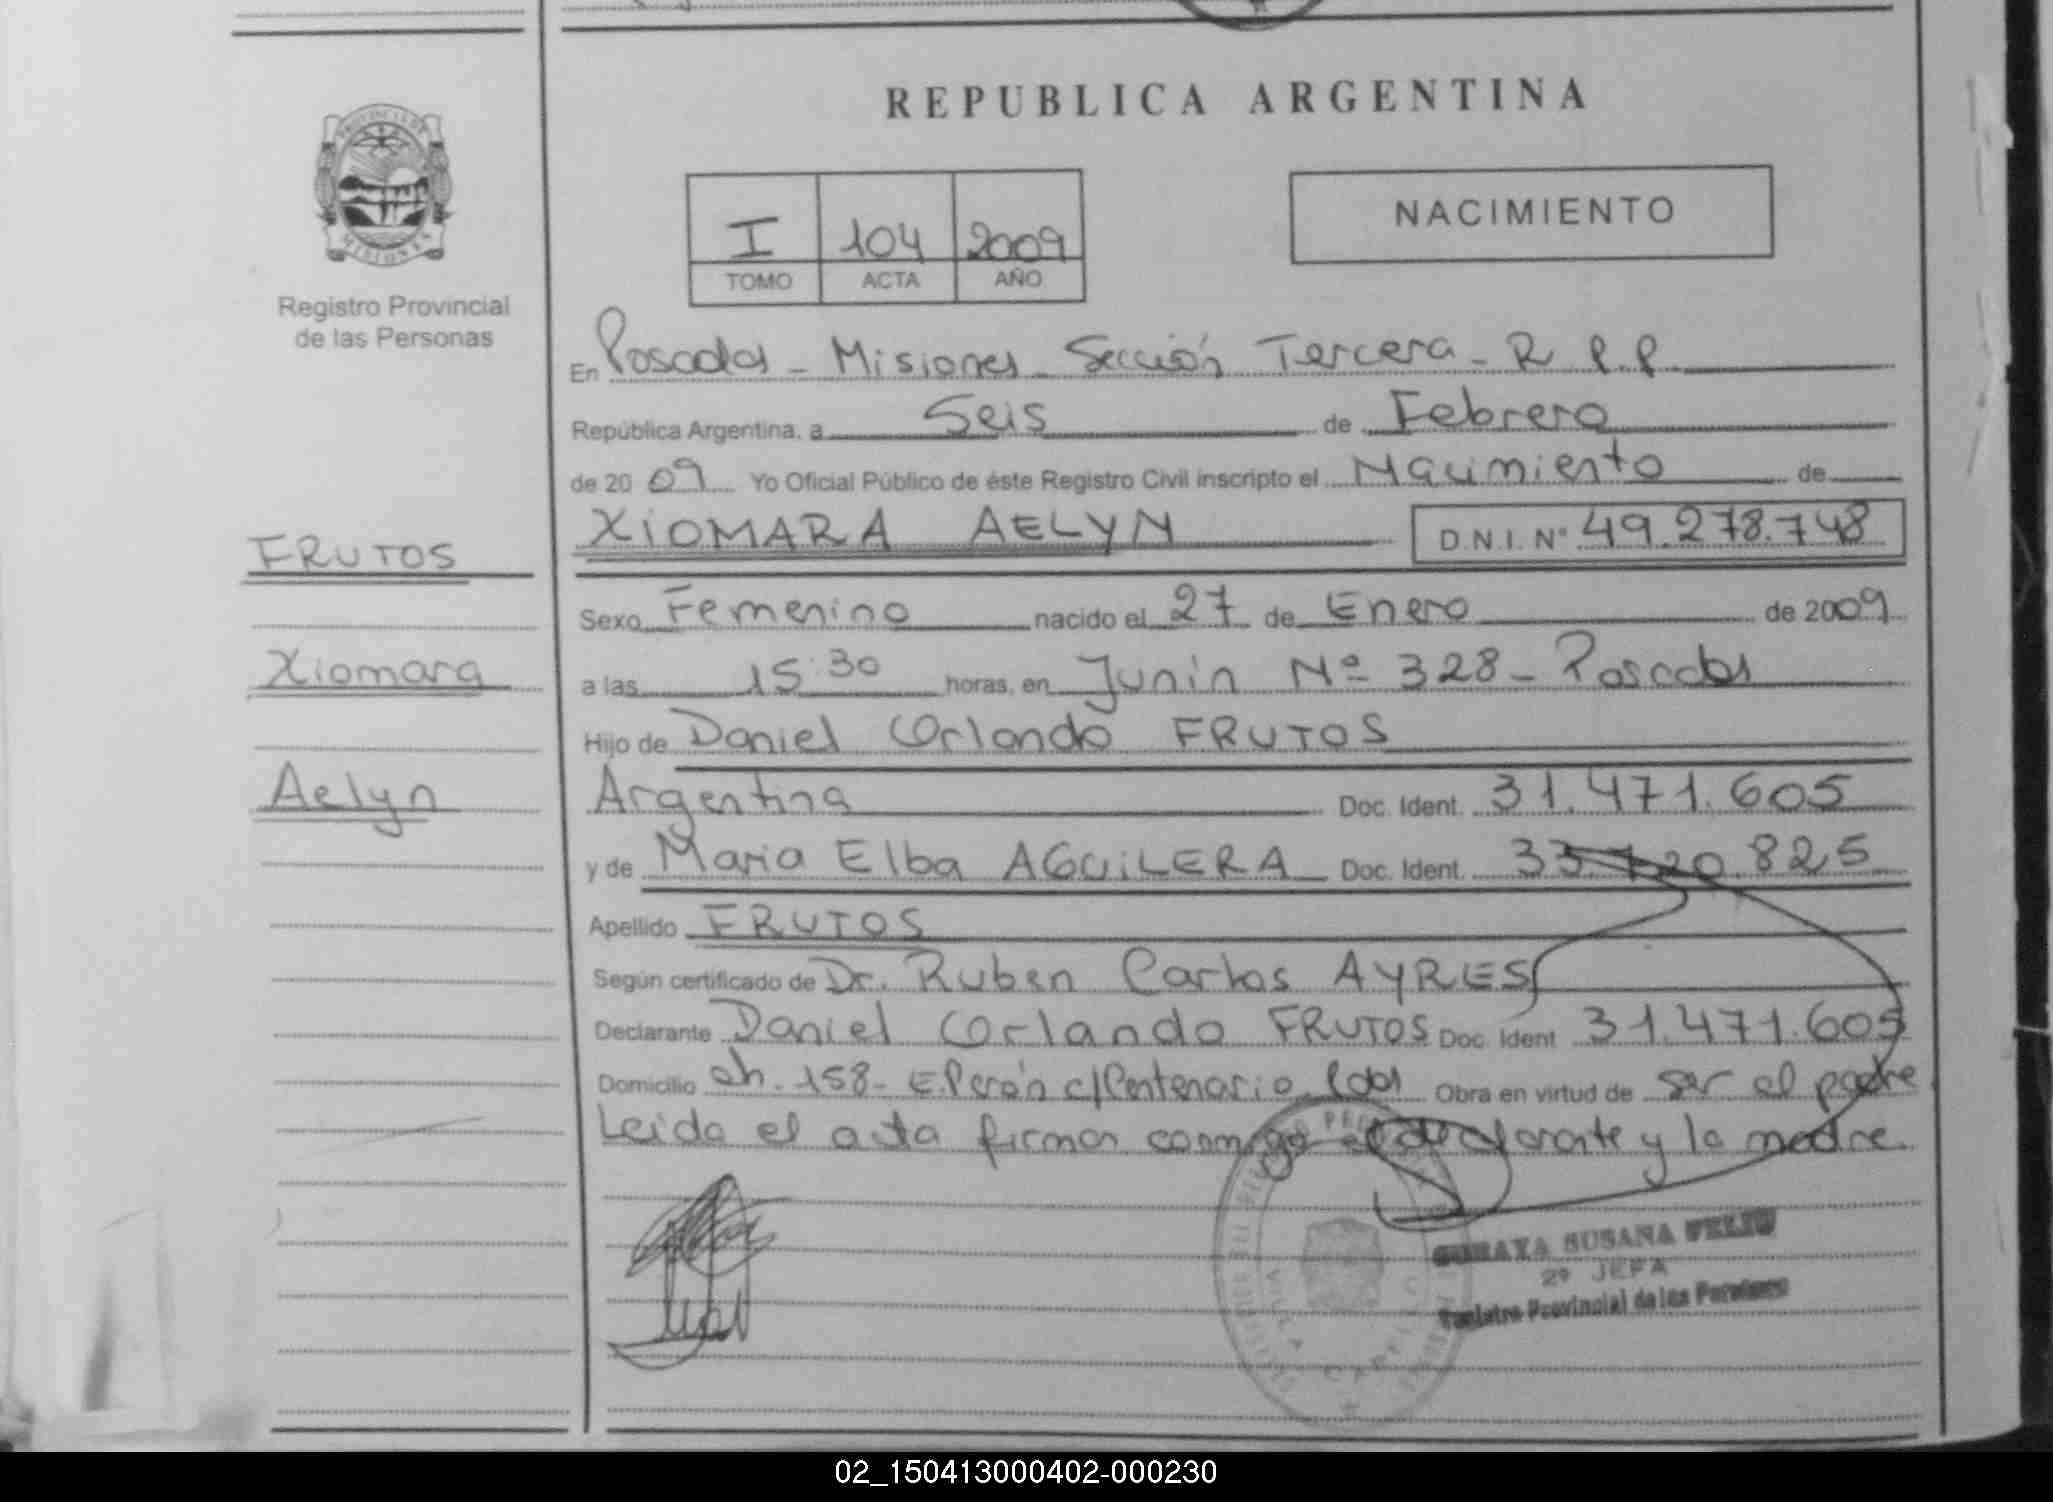 REPUBLICA ARGENTINA
PROVINCIA DE MISIONES
Registro Provincial
de las Personas
I 104 2009
TOMO ACTA AÑO
NACIMIENTO
En Posadas - Misiones - Sección Tercera - R.P.P.
República Argentina, a Seis de Febrero
de 2009 Yo Oficial Público de éste Registro Civil inscripto el Nacimiento de
XIOMARA AELYN D.N.I. Nº 49.278.748
FRUTOS
Xiomara
Aelyn
Sexo Femenino nacido el 27 de Enero de 2009
a las 15:30 horas, en Junín Nº 328 - Posadas
Hijo de Daniel Orlando FRUTOS
Argentina Doc. Ident. 31.471.605
y de Maria Elba AGUILERA Doc. Ident. 33. 825
Apellido FRUTOS
Según certificado de Dr. Ruben Carlos AYRES
Declarante Daniel Orlando FRUTOS Doc. Ident 31.471.605
Domicilio ch. 158 - E. Perón c/Centenario Pdas Obra en virtud de ser el padre
Leida el acta firman conmigo el declarante y la madre.
SUSANA FELIU
2º JEFA
Registro Provincial de las Personas
02_150413000402-000230